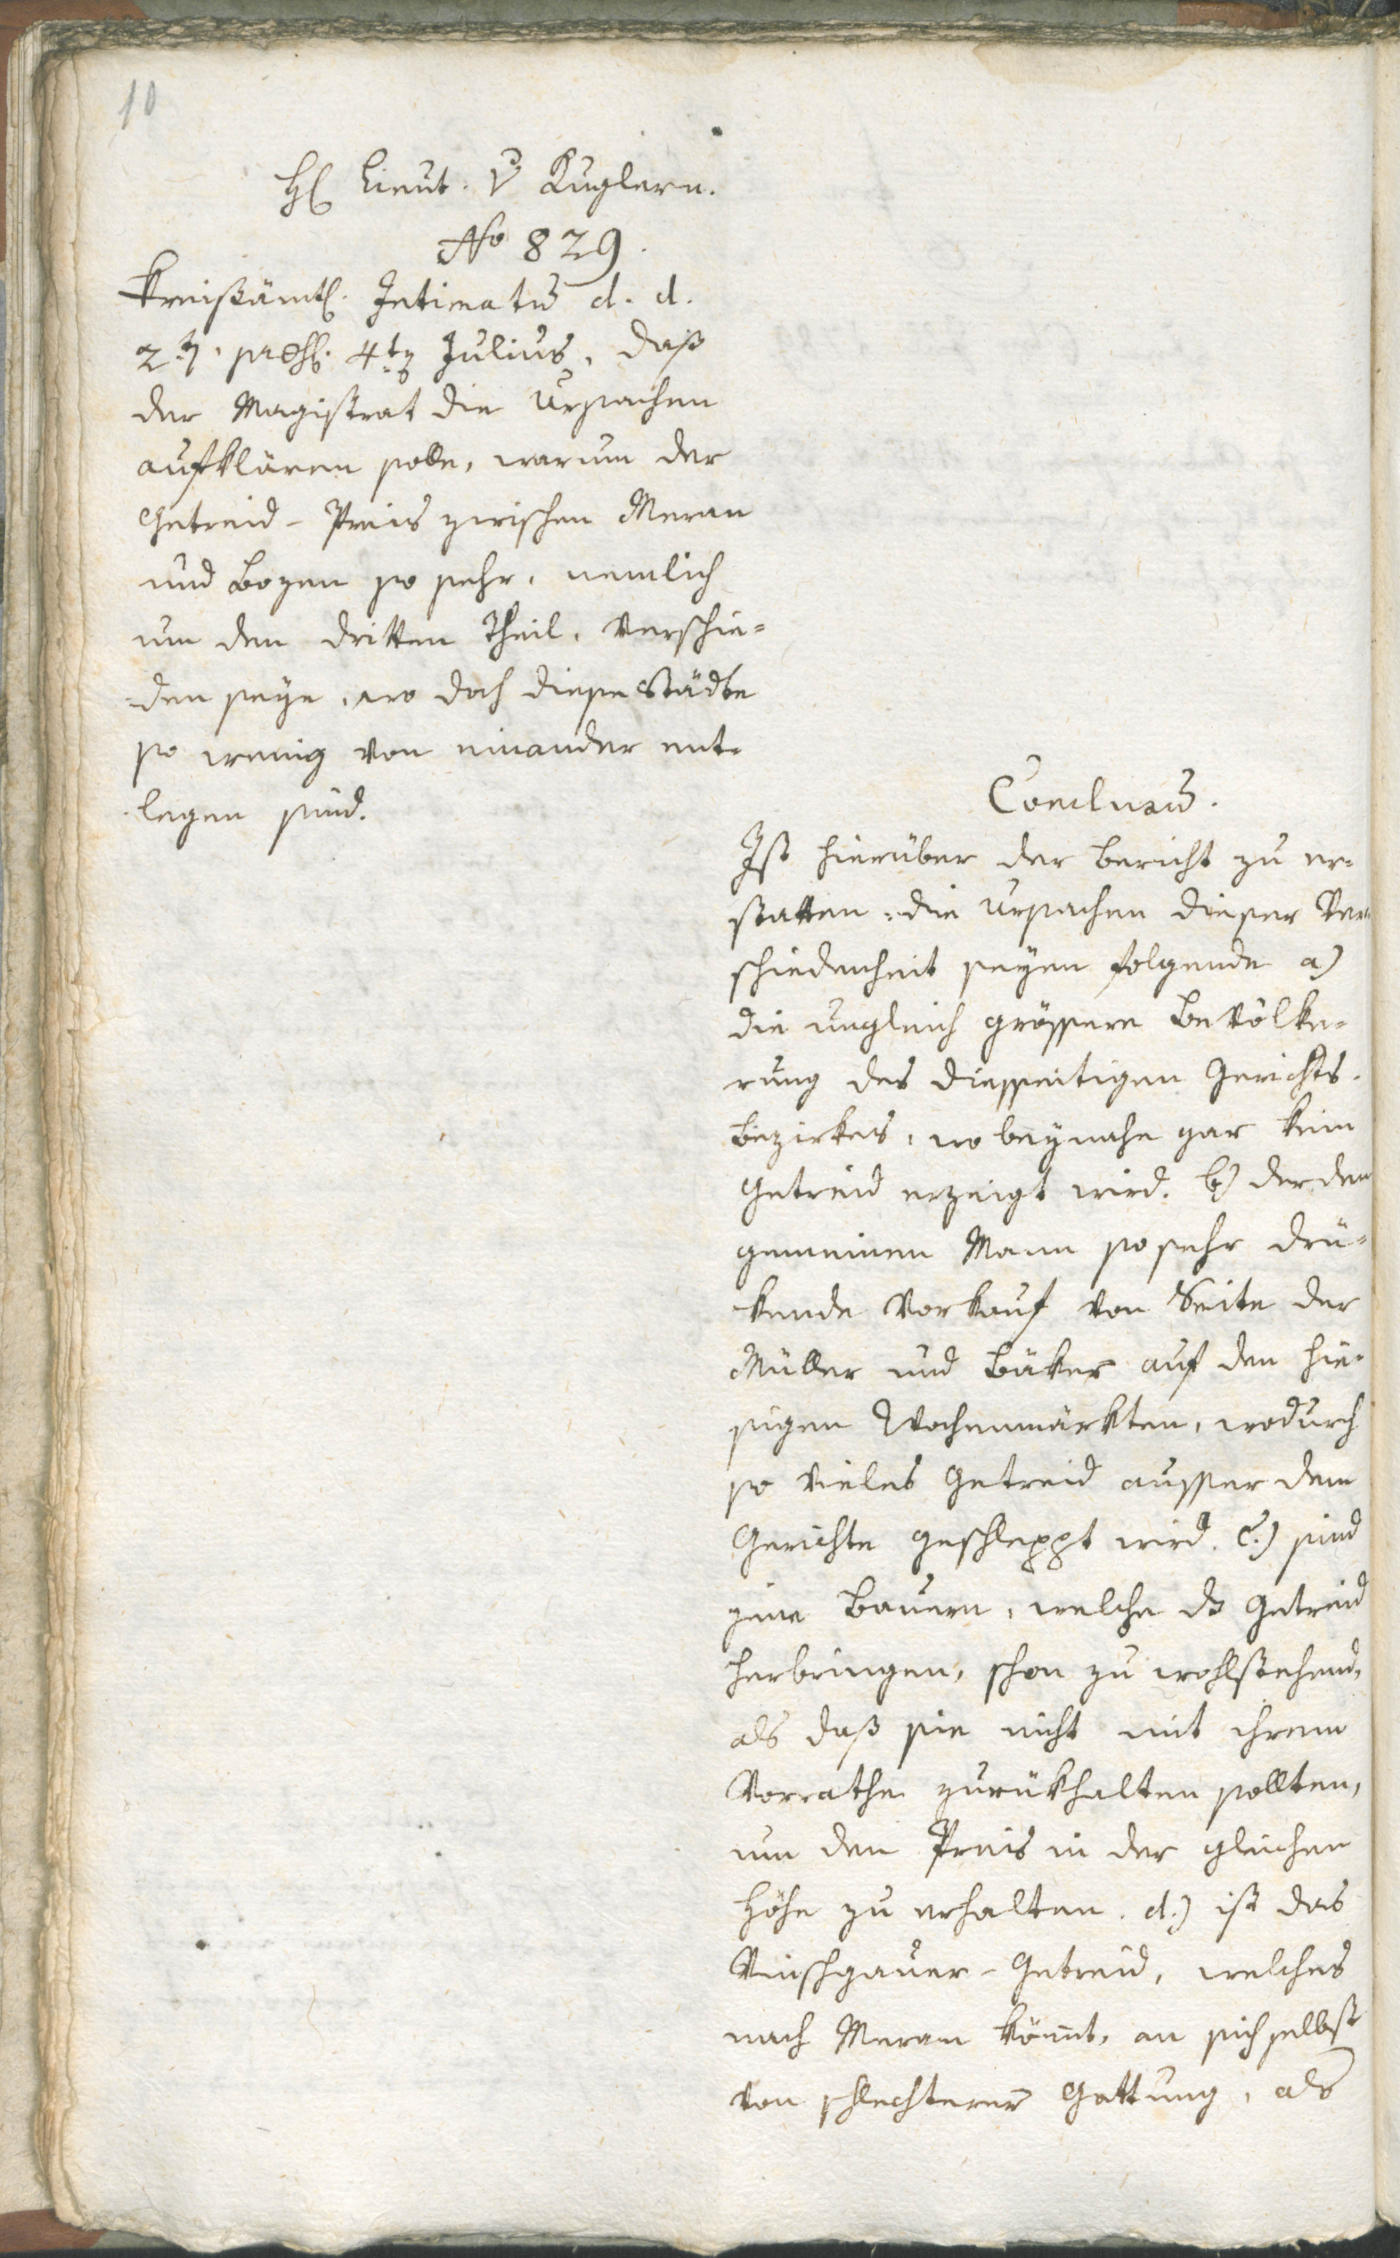 10
H. Lieut. v Kuglern.
No 829.
Kreisämtl. Intimatum d. d.
2t. 4ten Julius, daß
der Magistrat die Ursachen
aufklären solle, warum der
Getreid-Preis zwischen Meran
und Bozen so sehr, nemlich
um den dritten Theil, verschie=
den seye, wo doch diese Städte
so wenig von einander ent=
legen sind.
Conclusum.
Ist hierüber der Bericht zu er=
statten: die Ursachen dieser Ver
schiedenheit seyen folgende a)
die ungleich grössere Bevölke=
rung des diesseitigen Gerichts=
Bezirkes, wo beynahe gar kein
Getreid erzeigt wird. b) der den
gemeinen Mann so sehr drü=
kende Vorkauf von Seite der
Müller und Bäker auf den hie=
sigen Wochenmärkten, wodurch
so vieles Getreid ausser dem
Gerichte geschleppt wird. c.) sind
jene Bauern, welche ds Getreid
herbringen, schon zu wohlstehend,
als daß sie nicht mit ihrem
Vorrathe zurükhalten sollten,
um den Preis in der gleichen
Höhe zu erhalten. d.) ist das
Vinschgauer-Getreid, welches
nach Meran köm̄t, an sich selbst
von schlechterer Gattung, als